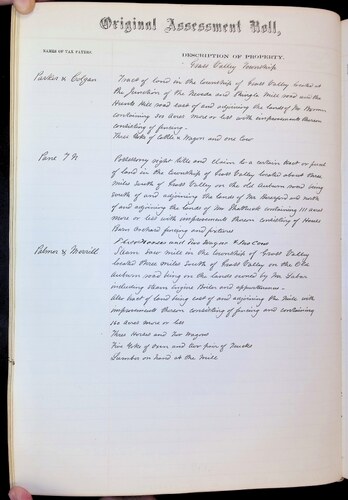 Original Assessment Roll,
NAMES OF TAX PAYERS. DESCRIPTION OF PROPERTY.
Grass Valley Township
Parker & Tract of land in the township of Grass Valley located at
the junction of the Nevada and Shingle Mill road and the
Hill road east of and adjoining the lands of Mr
containing 100 acres more or less with improvements thereon
consisting of fencing.
Three Yoke of Cattle a Wagon and one Cow
Possessory right title and Claim to a certain tract or parcel
of land in the township of Grass Valley located about three
miles south of Grass Valley on the old Auburn road being
south of and adjoining the lands of Mr and north
of and adjoining the lands of Mr containing 111 acres
more or less with improvements thereon consisting of House
Barn Orchard fencing and fixtures
Horses and Two Wagons & Cows
Palmer & Merrill Steam Saw Mill in the township of Grass Valley
located three miles south of Grass Valley on the Old
Auburn road being on the lands owned by Mr
including steam Engine Boiler and appurtenances
Also tract of land being east of and adjoining the Mill with
improvements thereon consisting of fencing and containing
160 acres more or less
Three Horses and Two Wagons
Five Yoke of Oxen and two pair of Trucks
Lumber on hand at the Mill